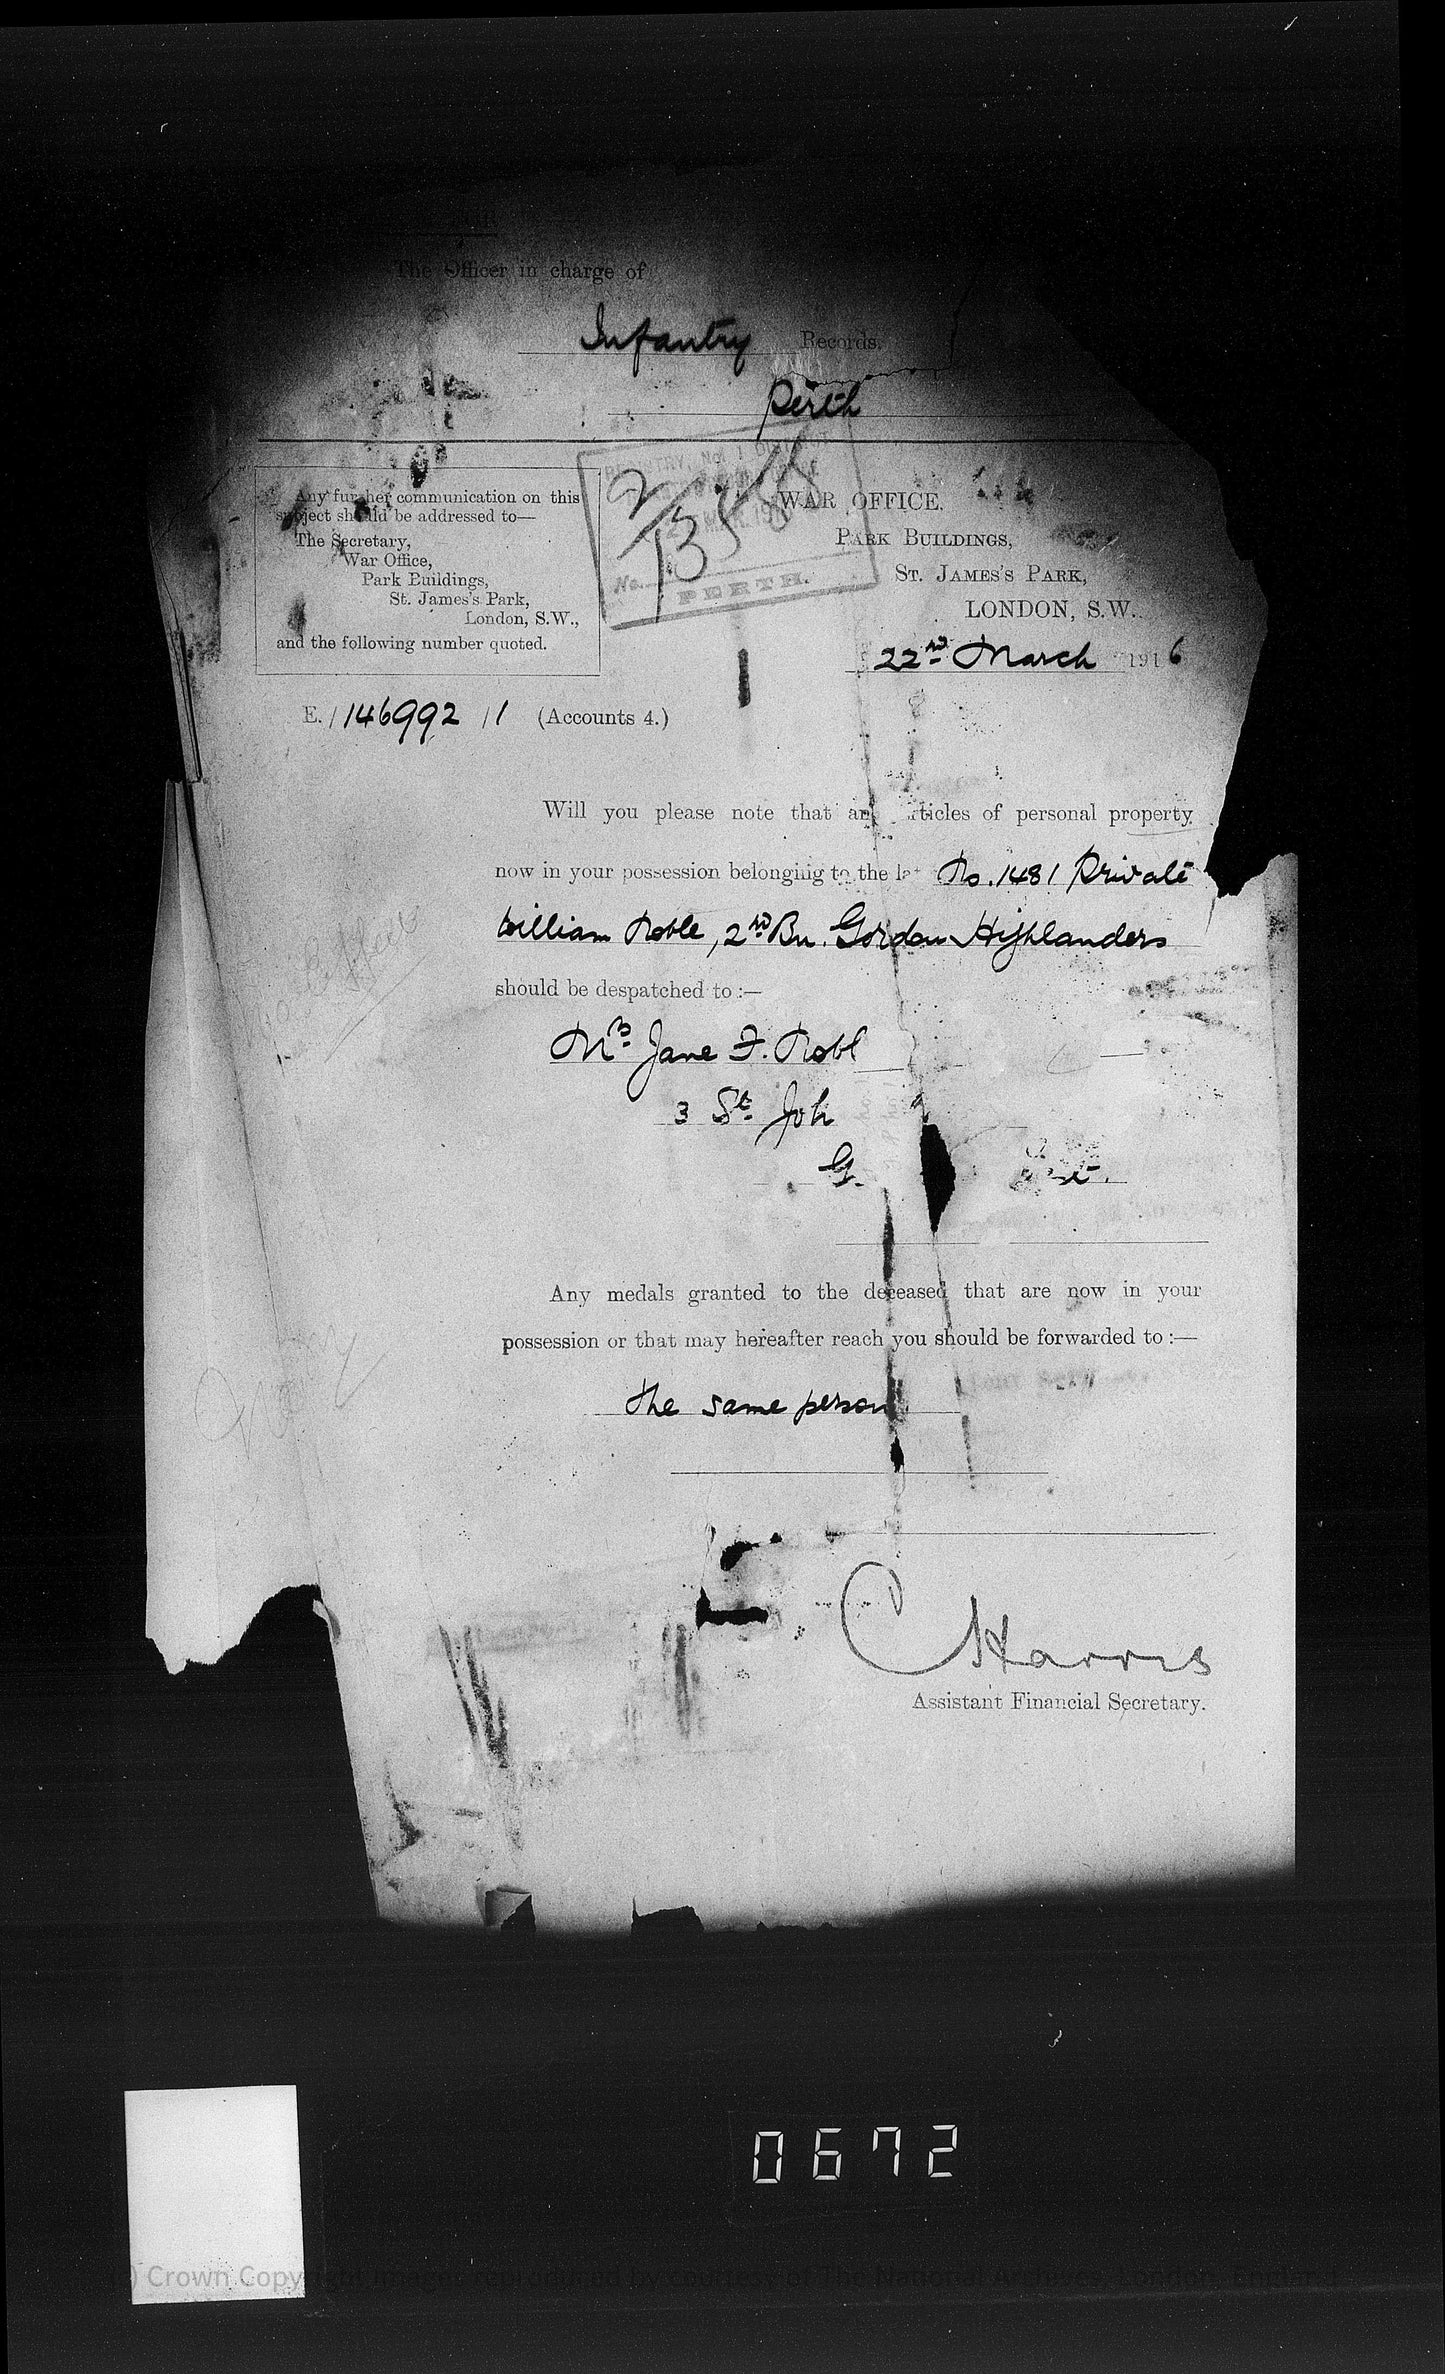 The Officer in charge of
Infantry Records.
Perth
Any further communication on this
subject should be addressed to—
The Secretary,
War Office,
Park Buildings,
St. James's Park,
London, S.W.,
and the following number quoted.
INFANTRY No. 1 DISTRICT
2/13588
MAR. 19
No.
PERTH.
WAR OFFICE,
PARK BUILDINGS,
ST. JAMES'S PARK,
LONDON, S.W.
22nd March 1916
E./146992/1 (Accounts 4.)
Will you please note that any articles of personal property
now in your possession belonging to the late No. 1481 Private
William Noble, 2nd Bn. Gordon Highlanders
should be despatched to :—
Mrs Jane F. Nobl
3 St. Joh
G.
Any medals granted to the deceased that are now in your
possession or that may hereafter reach you should be forwarded to :—
the same person
C Harris
Assistant Financial Secretary.
0672
Crown Copyright Images reproduced by courtesy of The National Archives, London, England